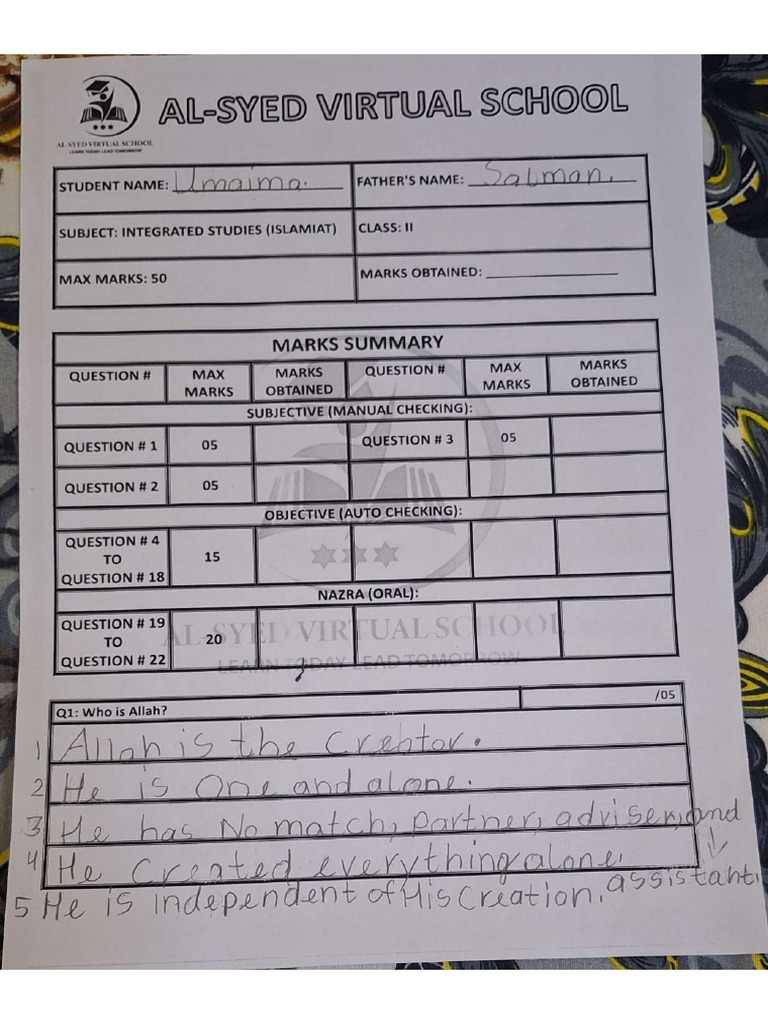 AL-SYED VIRTUAL SCHOOL
AL-SYED VIRTUAL SCHOOL
LEARN TODAY LEAD TOMORROW
STUDENT NAME: Umaima.
FATHER'S NAME: Salman.
SUBJECT: INTEGRATED STUDIES (ISLAMIAT)
CLASS: II
MAX MARKS: 50
MARKS OBTAINED:
MARKS SUMMARY
QUESTION # MAX MARKS MARKS OBTAINED QUESTION # MAX MARKS MARKS OBTAINED
SUBJECTIVE (MANUAL CHECKING):
QUESTION # 1 05 QUESTION # 3 05
QUESTION # 2 05
OBJECTIVE (AUTO CHECKING):
QUESTION # 4
TO 15
QUESTION # 18
NAZRA (ORAL):
QUESTION # 19
TO 20
QUESTION # 22
AL-SYED VIRTUAL SCHOOL
LEARN TODAY LEAD TOMORROW
Q1: Who is Allah? /05
1 Allah is the Creator.
2 He is One and alone.
3 He has No match, partner, adviser, and
assistant.
4 He Created everything alone.
5 He is independent of His Creation.